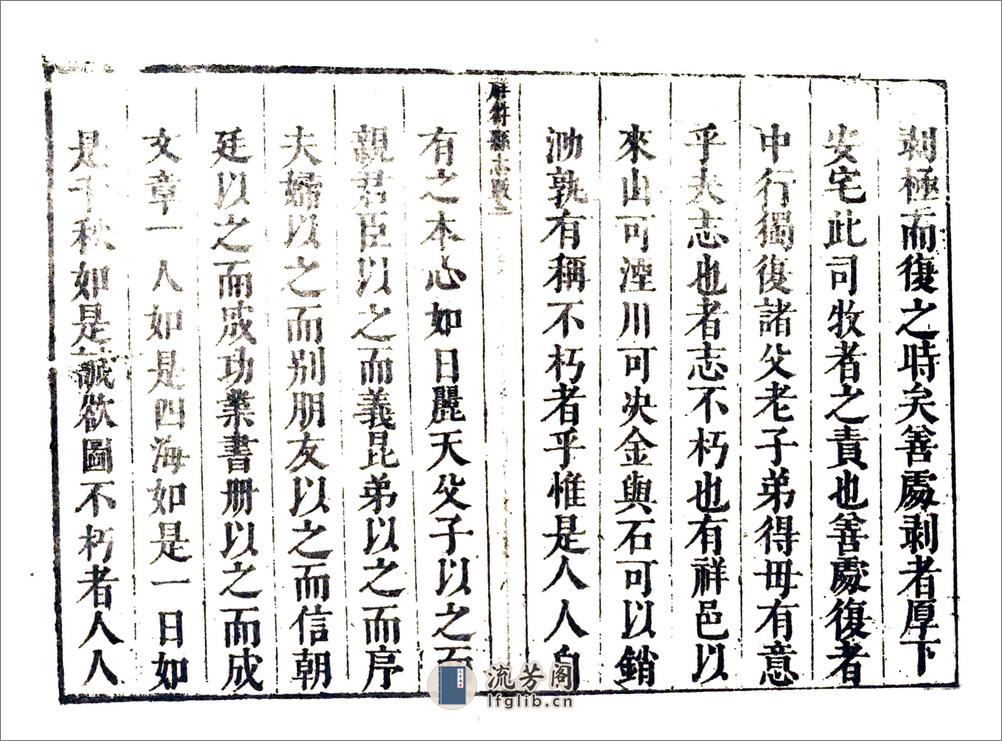 剥極而復之時矣善處剥者厚下
安宅此司牧者之責也善處復者
中行獨復諸父老子弟得毋有意
乎夫志也者志不朽也有祥邑以
來山可湮川可决金與石可以銷
泐孰有稱不朽者乎惟是人人自
祥符縣志跋二
有之本心如日麗天父子以之而
親君臣以之而義昆弟以之而序
夫婦以之而别朋友以之而信朝
廷以之而成功業書册以之而成
文章一人如是四海如是一日如
是千秋如是誠欲圖不朽者人人
流芳阁
lfglib.cn